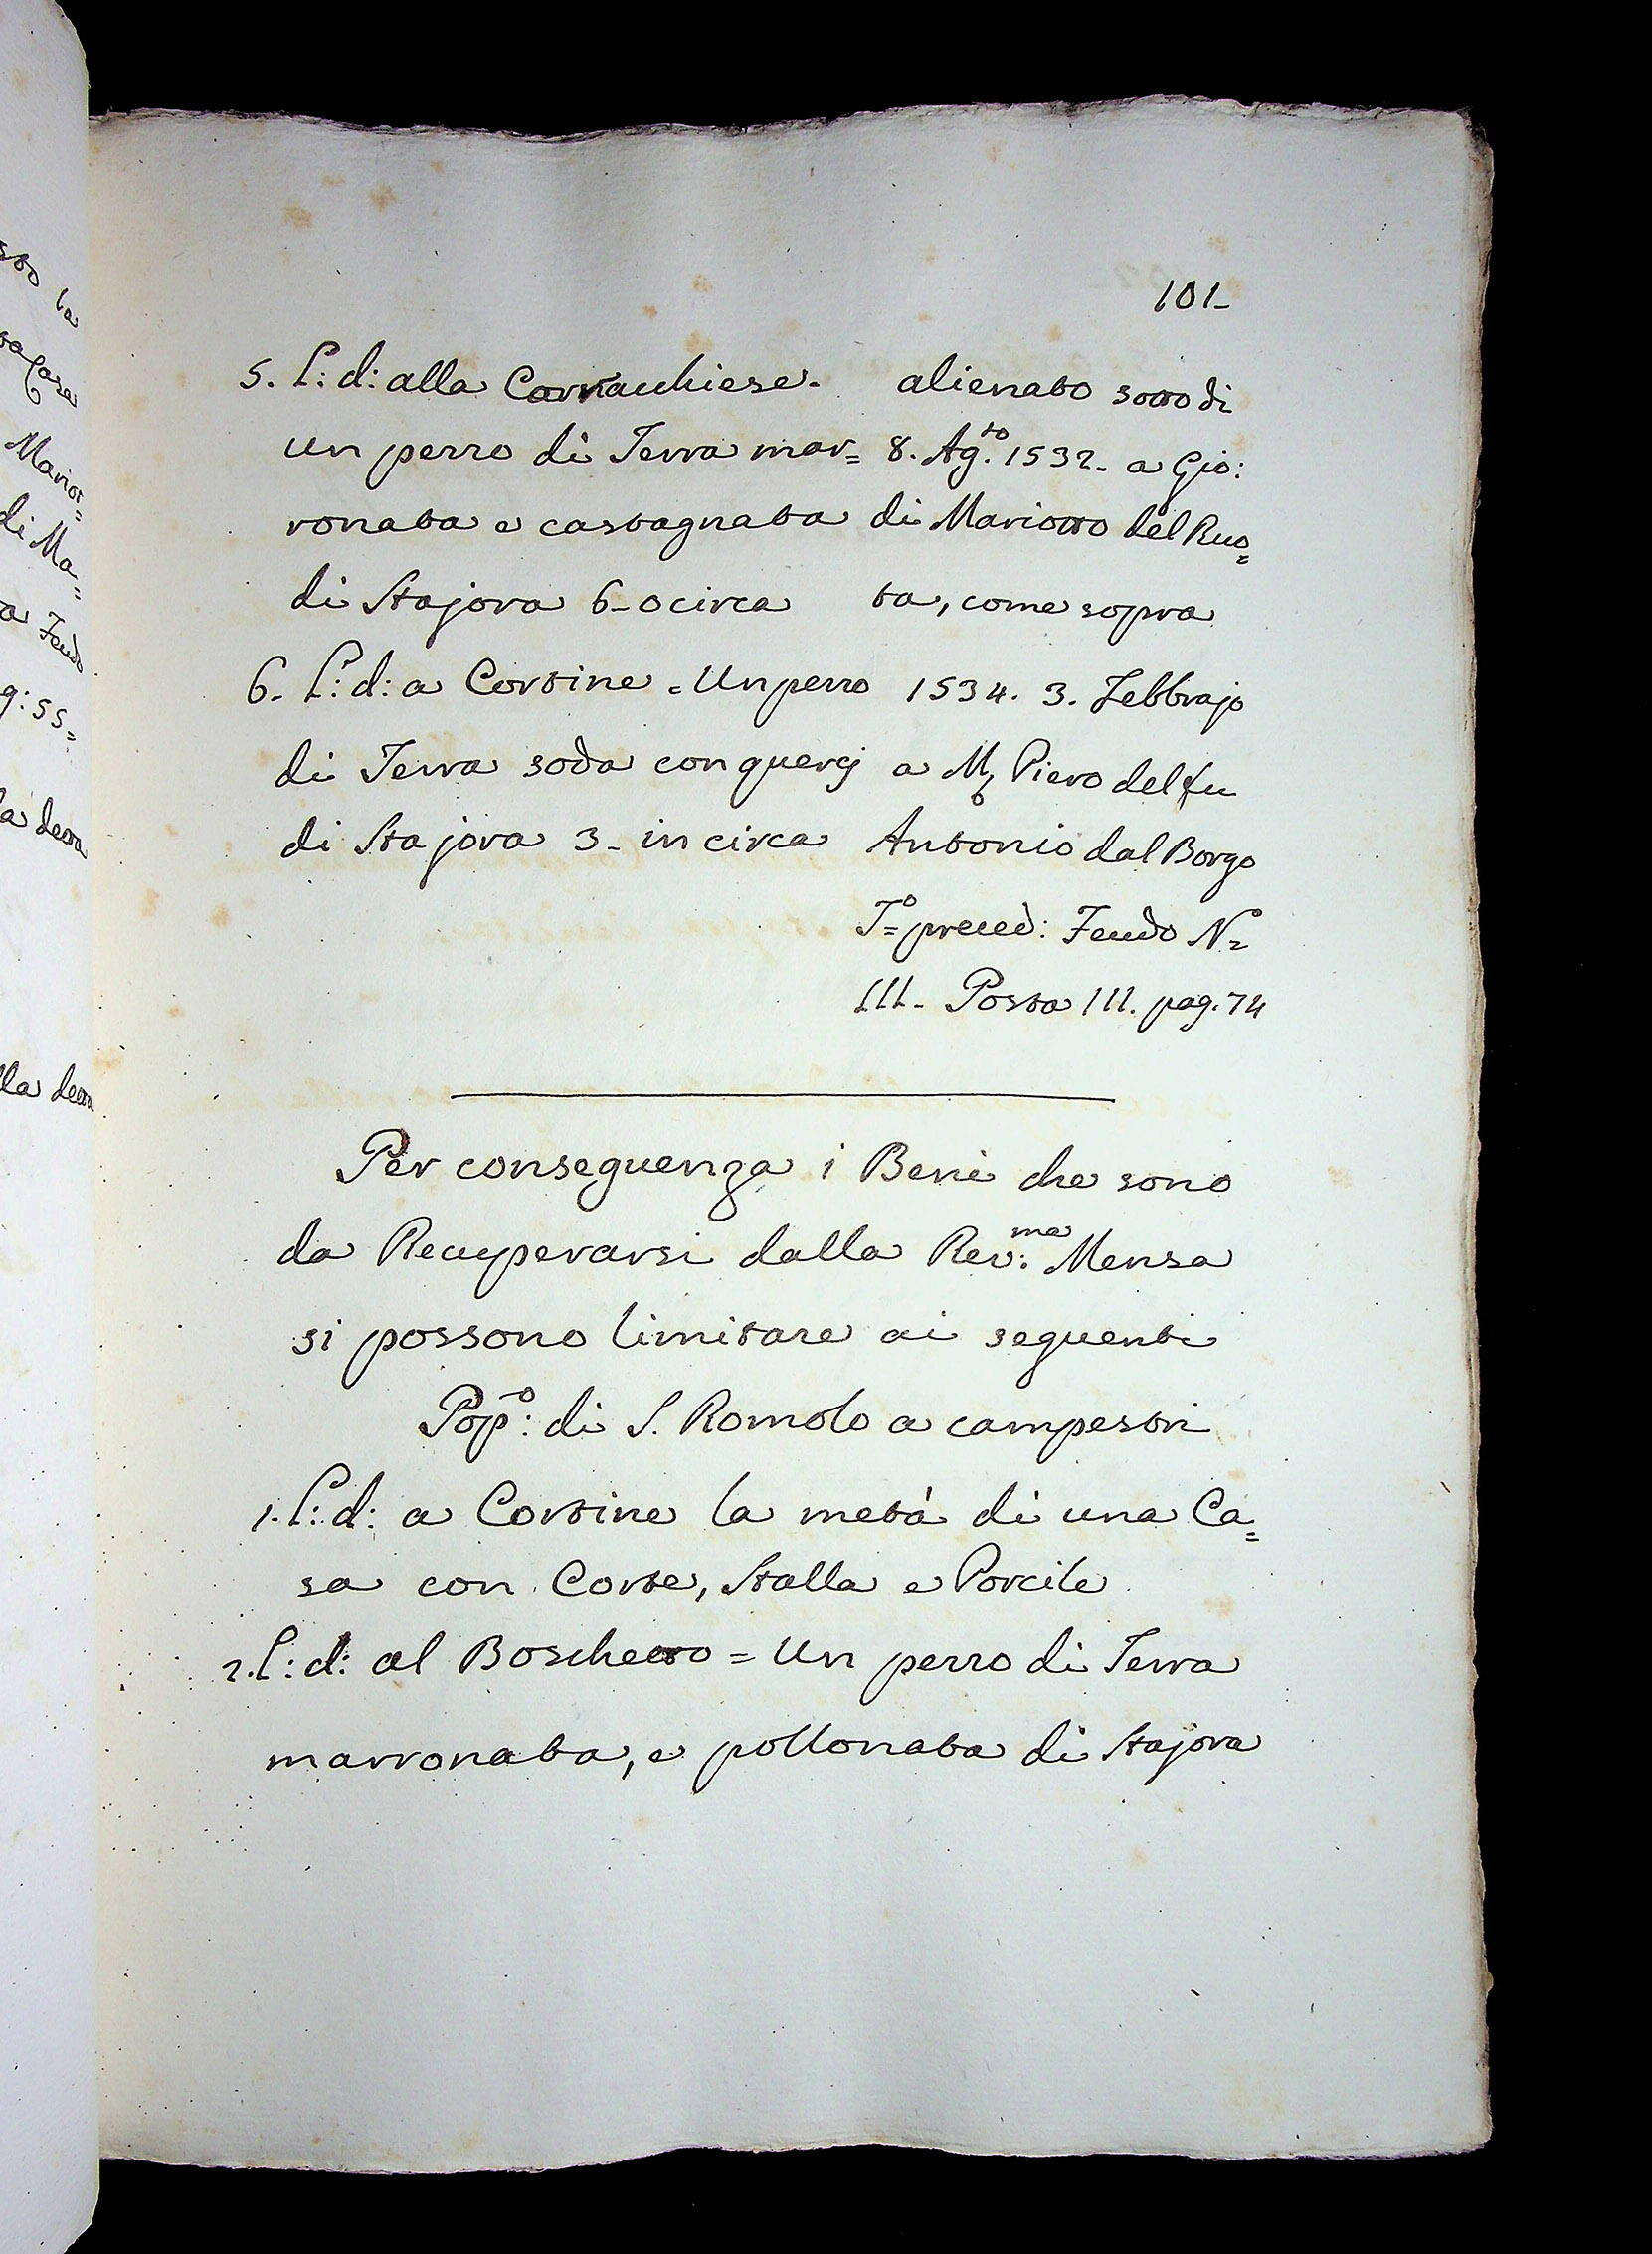 101-
5. L: d: alla Cornacchiese.
un pezzo di Terra mar=
ronata e castagnata
di Stajora 6-0 circa
alienato sotto di
8. Ag.to 1532. a Gio:
di Mariotto del Ruo=
ta, come sopra
6. L: d: a Cortine = Un pezzo
di Terra soda con quercj
di Stajora 3- in circa
1534. 3. Febbrajo
a Mo Piero del fu
Antonio dal Borgo
To= preced: Feudo No=
III- Posta III. pag. 74
Per conseguenza i Beni che sono
da Recuperarsi dalla Rev:ma Mensa
si possono limitare ai seguenti
Pop:o di S. Romolo a campestri
1. L: d: a Cortine la metà di una Ca=
sa con Corte, Stalla e Porcile
2. L: d: al Boschetto = Un pezzo di Terra
marronata, e pollonata di Stajora